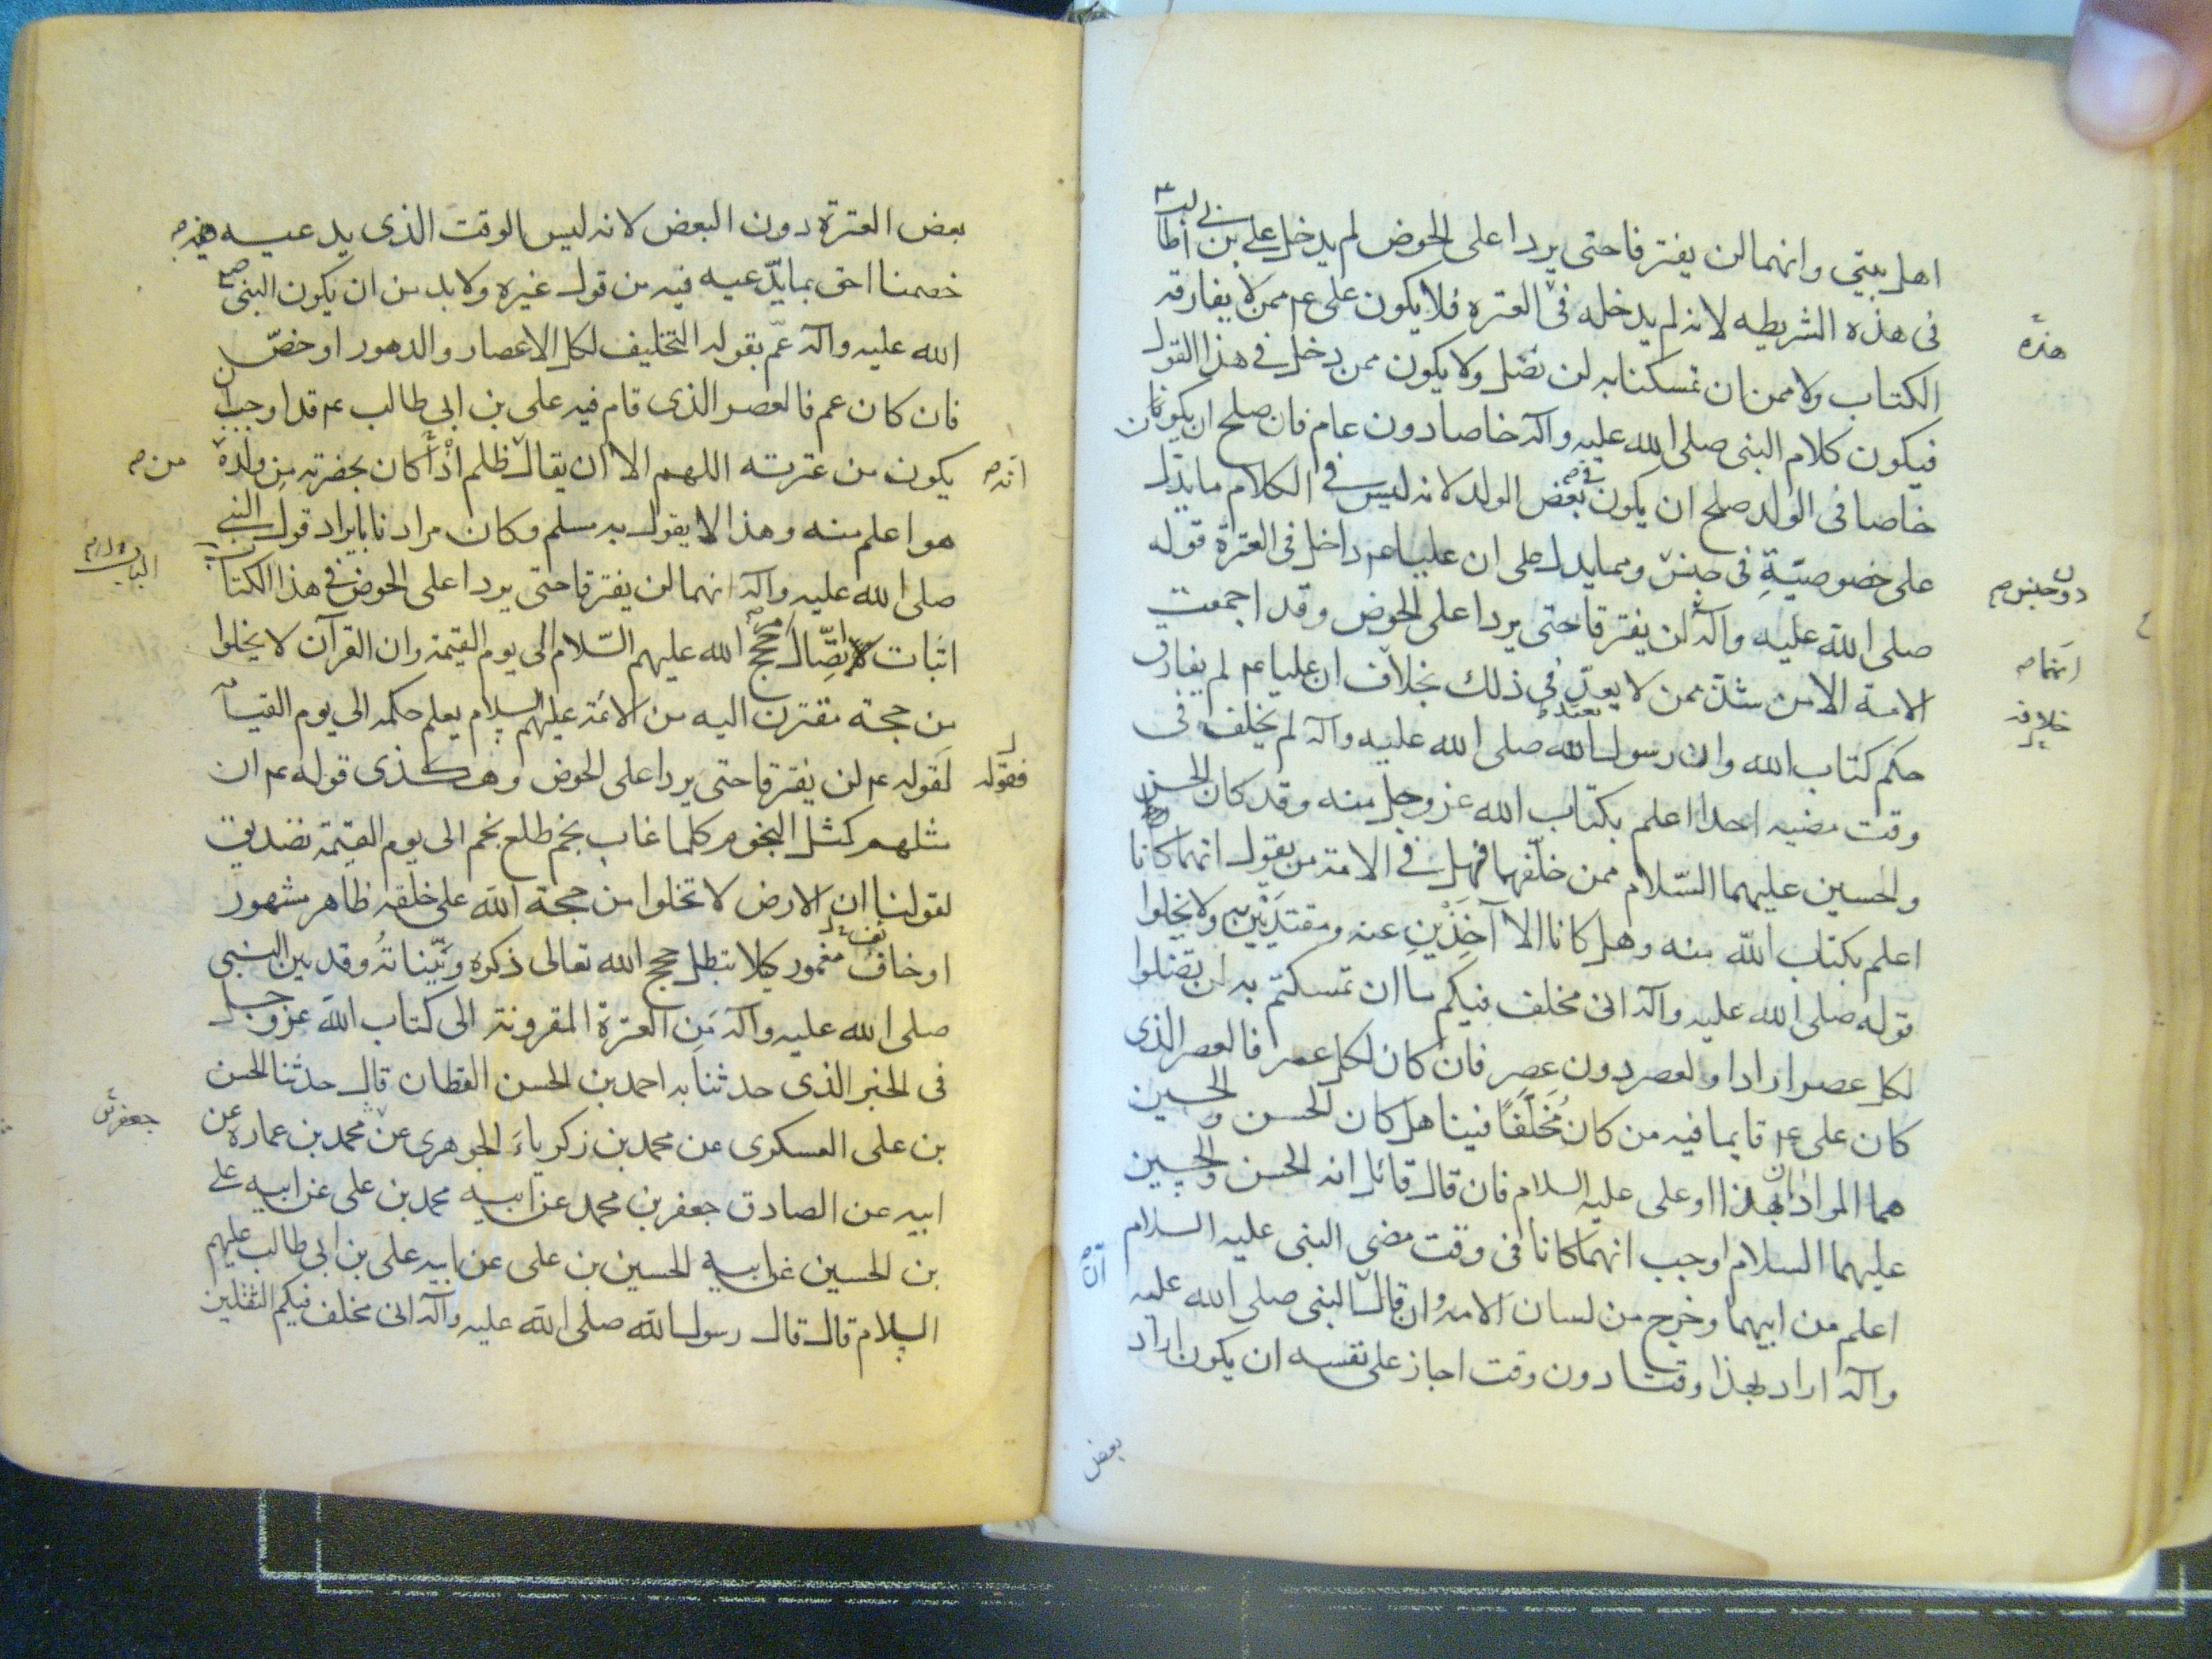 اهل بيتي وانهما لن يفترقا حتى يردا على الحوض لم يدخل علي بن ابي طالب ع
فى هذه الشريطه لانه لم يدخله فى العتره فلا يكون على ع ممن لا يفارقه
هذه
الكتاب ولا ممن ان تمسكنا به لن نضل ولا يكون ممن دخل فى هذا القول
فيكون كلام النبى صلى الله عليه وآله خاصا دون عام فان صلح ان يكون
خاصا فى الولد صلح ان يكون فى بعض الولد لانه ليس فى الكلام ما يدل
على خصوصيّةِ فى جنس ومما يدل على ان عليا ع داخل فى العترة قوله
دون جنس
صلى الله عليه وآله لن يفترقا حتى يردا على الحوض وقد اجمعت
انهما
الامة الا من شذّ ممن لا يعدّ فى ذلك بخلاف ان عليا ع لم يفارق
خلافه
حكم كتاب الله وان رسول الله صلى الله عليه وآله لم يخلف فى
وقت مضيه احدا اعلم بكتاب الله عز وجل منه وقد كان الحسن
والحسين عليهما السّلام ممن خلّفهما فهل فى الامة من يقول انهما كانا
اعلم بكتاب الله منه وهل كانا الا آخِذَيْنِ عنه ومقتدِيَيْنِ به ولا يخلوا
قوله صلى الله عليه وآله انى مخلف فيكم ما ان تمسكتم به لن تضلوا
لكل عصر اراد او لعصر دون عصر فان كان لكل عصر فالعصر الذى
كان على ع قايما فيه من كان مُخَلَّفًا فينا هل كان الحسن والحسين
هما المرادان بهذا او على عليه السلام فان قال قائل انه الحسن والحسين
عليهما السلام اوجب انهما كانا فى وقت مضى النبى عليه السلام
اعلم من ابيهما وخرج من لسان الامه وان قال النبى صلى الله عليه
ان
وآله اراد بهذا وقتا دون وقت اجاز على نفسه ان يكون اراد
بعض
بعض العترة دون البعض لانه ليس الوقت الذى يدعيه
خصمنا احق بما يدّعيه فيه من قول غيره ولا بد من ان يكون النبى صلى
الله عليه وآله عمّ بقوله التخليف لكل الاعصار والدهور او خصّ
فان كان عم فالعصر الذى قام فيه على بن ابى طالب ع قد اوجب ان
يكون من عترته اللهم الا ان يقال ظلم اذ كان بحضرته مِن ولده
انه
من
هو اعلم منه وهذا لا يقول به مسلم وكان مرادنا بايراد قول النبي
صلى الله عليه وآله انهما لن يفترقا حتى يردا على الحوض فى هذا الكتاب
اثبات اتّصال حجج الله عليهم السّلام الى يوم القيمة وان القرآن لا يخلوا
من حجة مقترن اليه من الائمة عليهم السلام يعلم حكمه الى يوم القيامة
لقوله ع لن يفترقا حتى يردا على الحوض وهكذى قوله ع ان
فقوله
مثلهم كمثل النجوم كلما غاب نجم طلع نجم الى يوم القيمة تصديق
لقولنا ان الارض لا تخلوا من حجة الله على خلقه ظاهر مشهور
او خاف مغمور كيلا تبطل حجج الله تعالى ذكره وبيّناتهُ وقد بين النبى
صلى الله عليه وآله مَن العترة المقرونة الى كتاب الله عز وجل
فى الخبر الذى حدثنا به احمد بن الحسن القطان قال حدثنا الحسن
بن على العسكرى عن محمد بن زكرياءَ الجوهرى عن محمد بن عمارة عن
جعفر بن
ابيه عن الصادق جعفر بن محمد عن ابيه محمد بن على عن ابيه على
بن الحسين عن ابيه الحسين بن على عن ابيه على بن ابى طالب عليهم
السلام قال قال رسول الله صلى الله عليه وآله انى مخلف فيكم الثقلين